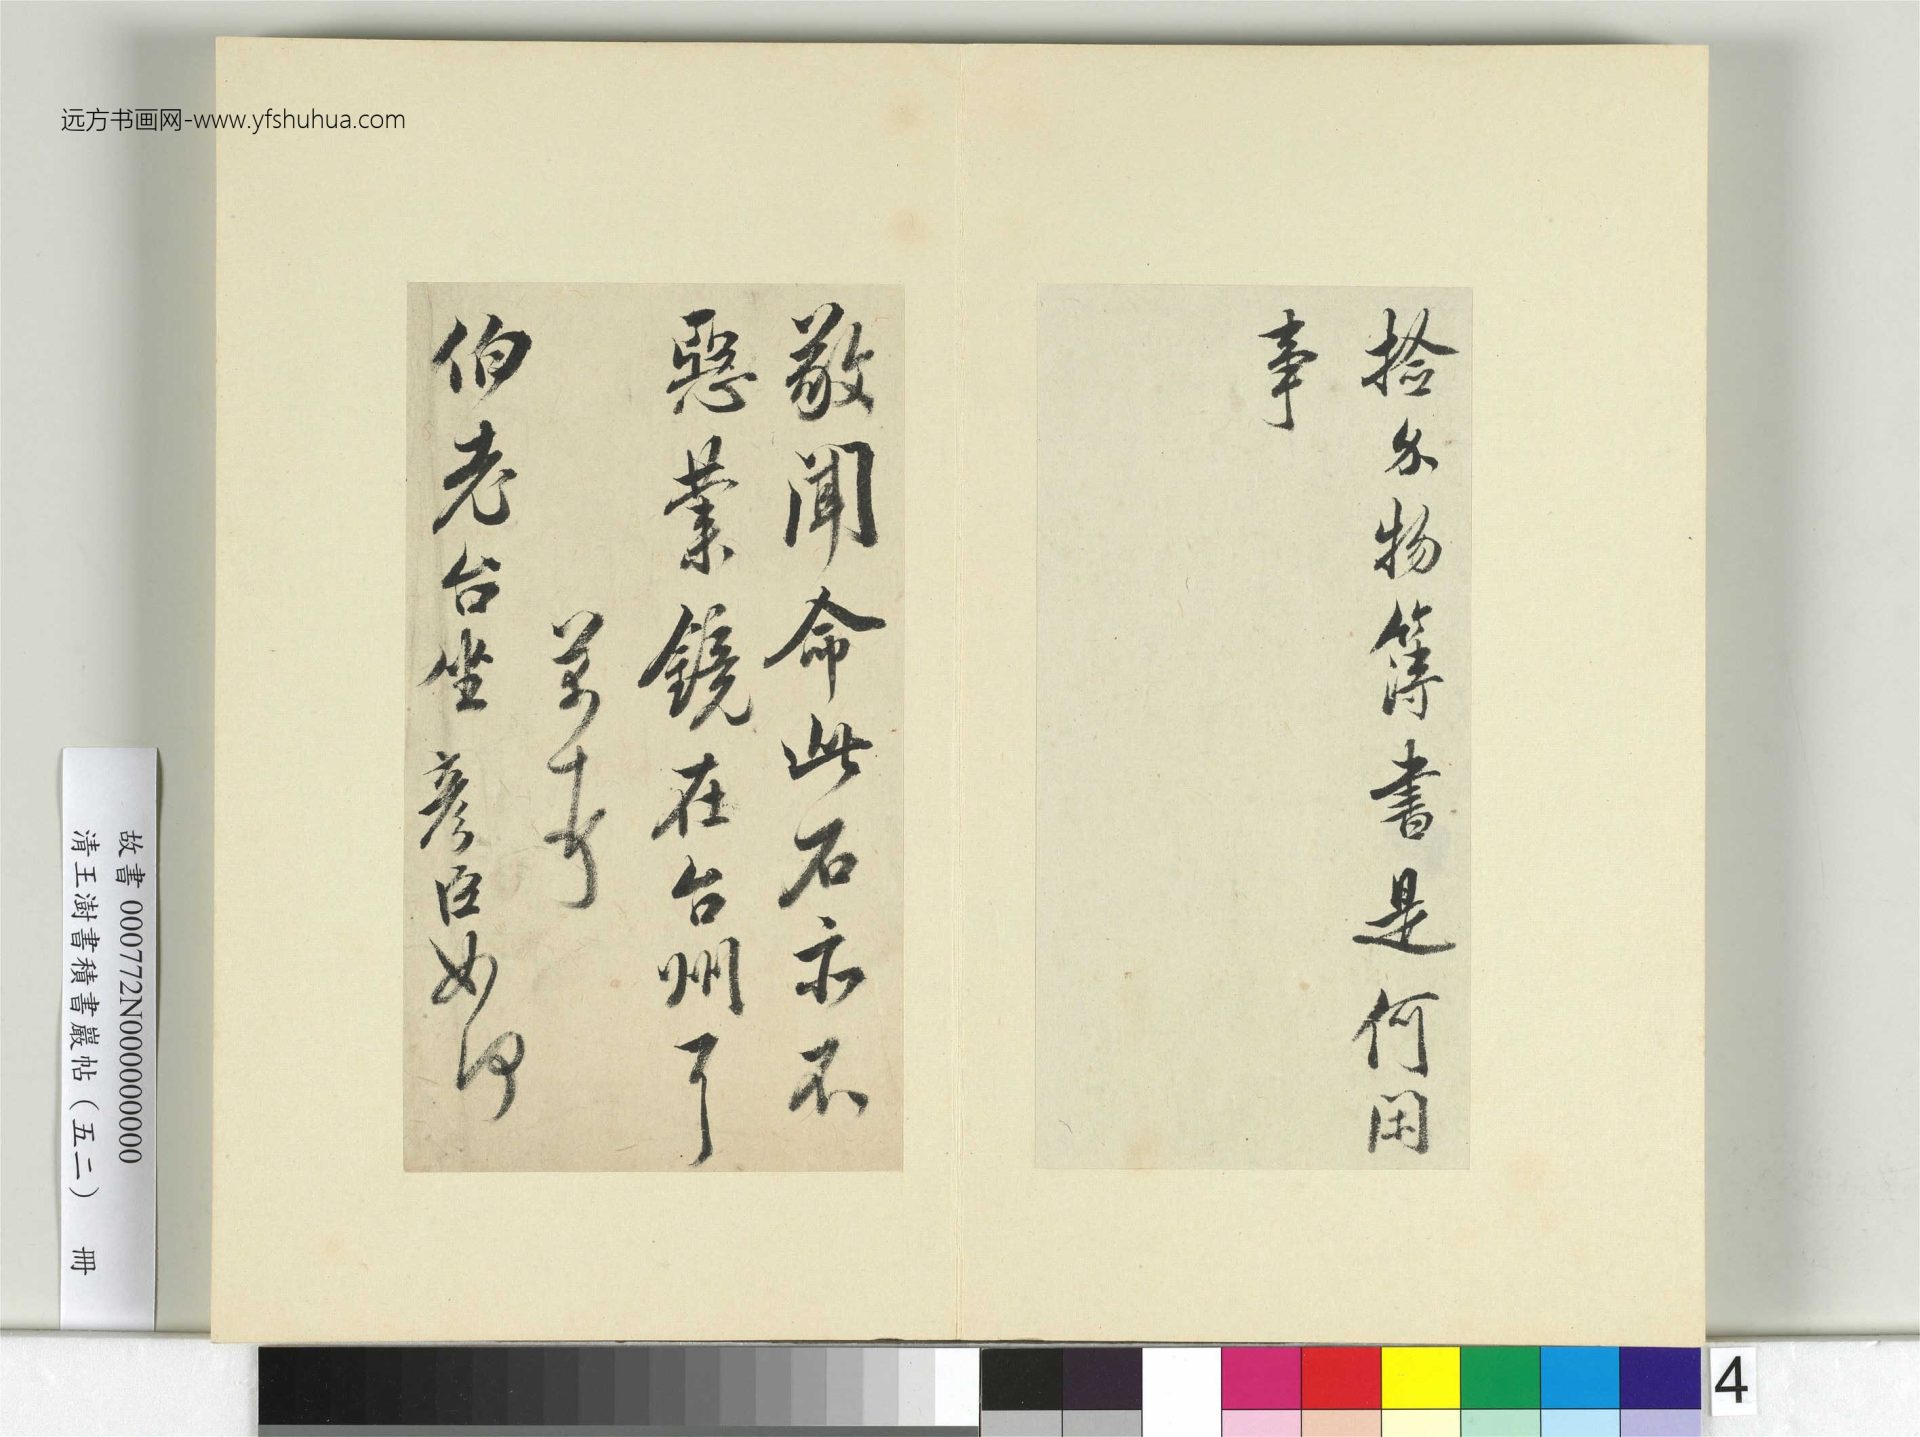 远方书画网-www.yfshuhua.com
物簿書是何閑
事
敬聞命此石亦不
惡業鏡在台州了
芾頓首
伯老台坐 彥臣如何
故書 000772N000000000
清王澍書積書巖帖(五二) 冊
4